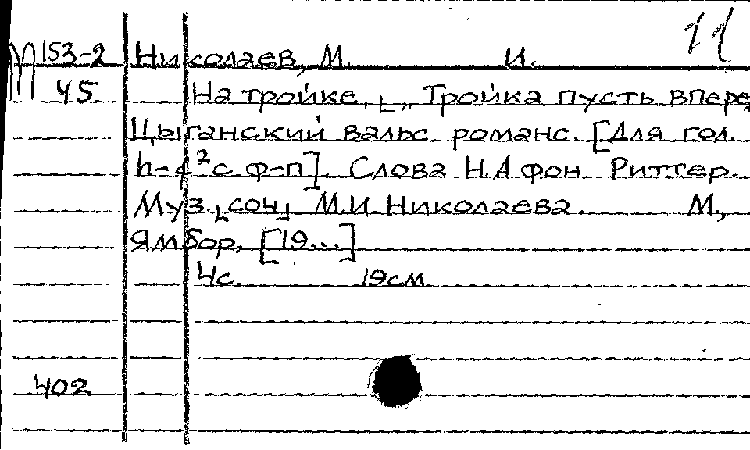 11
М153-2 Николаев, М. И.
45 На тройке. „Тройка пусть впере
Цыганский вальс романс. [Для гол.
h-f² с ф-п]. Слова Н.А фон Риттер.
Муз. соч. М.И Николаева. М.,
Ямбор, [19...]
4с. 19см
402